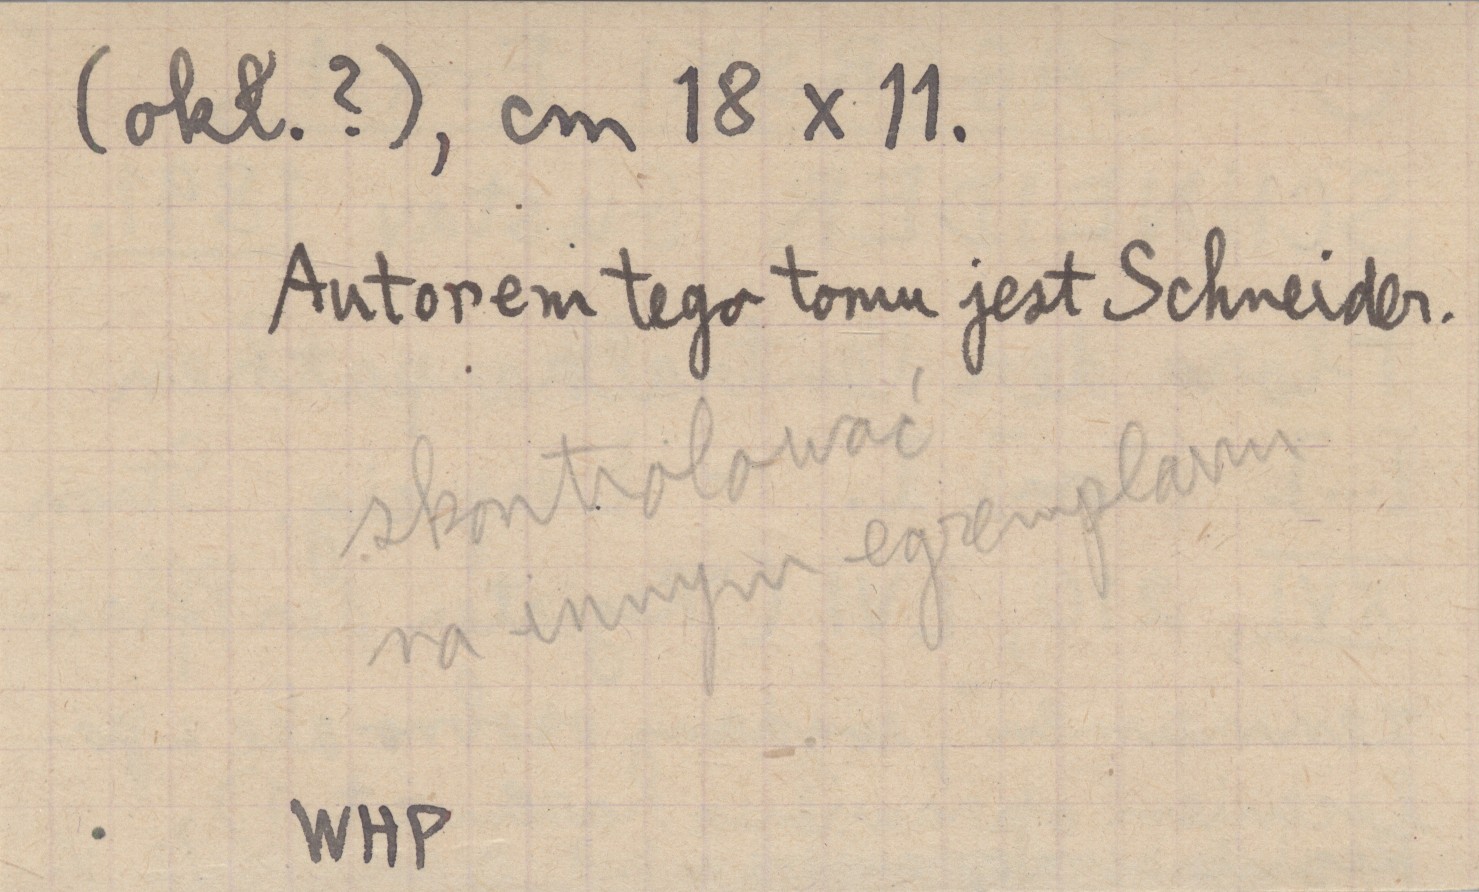 (okł.?), cm 18 x 11.
Autorem tego tomu jest Schneider.
skontrolować
na innym egzemplarzu
WHP